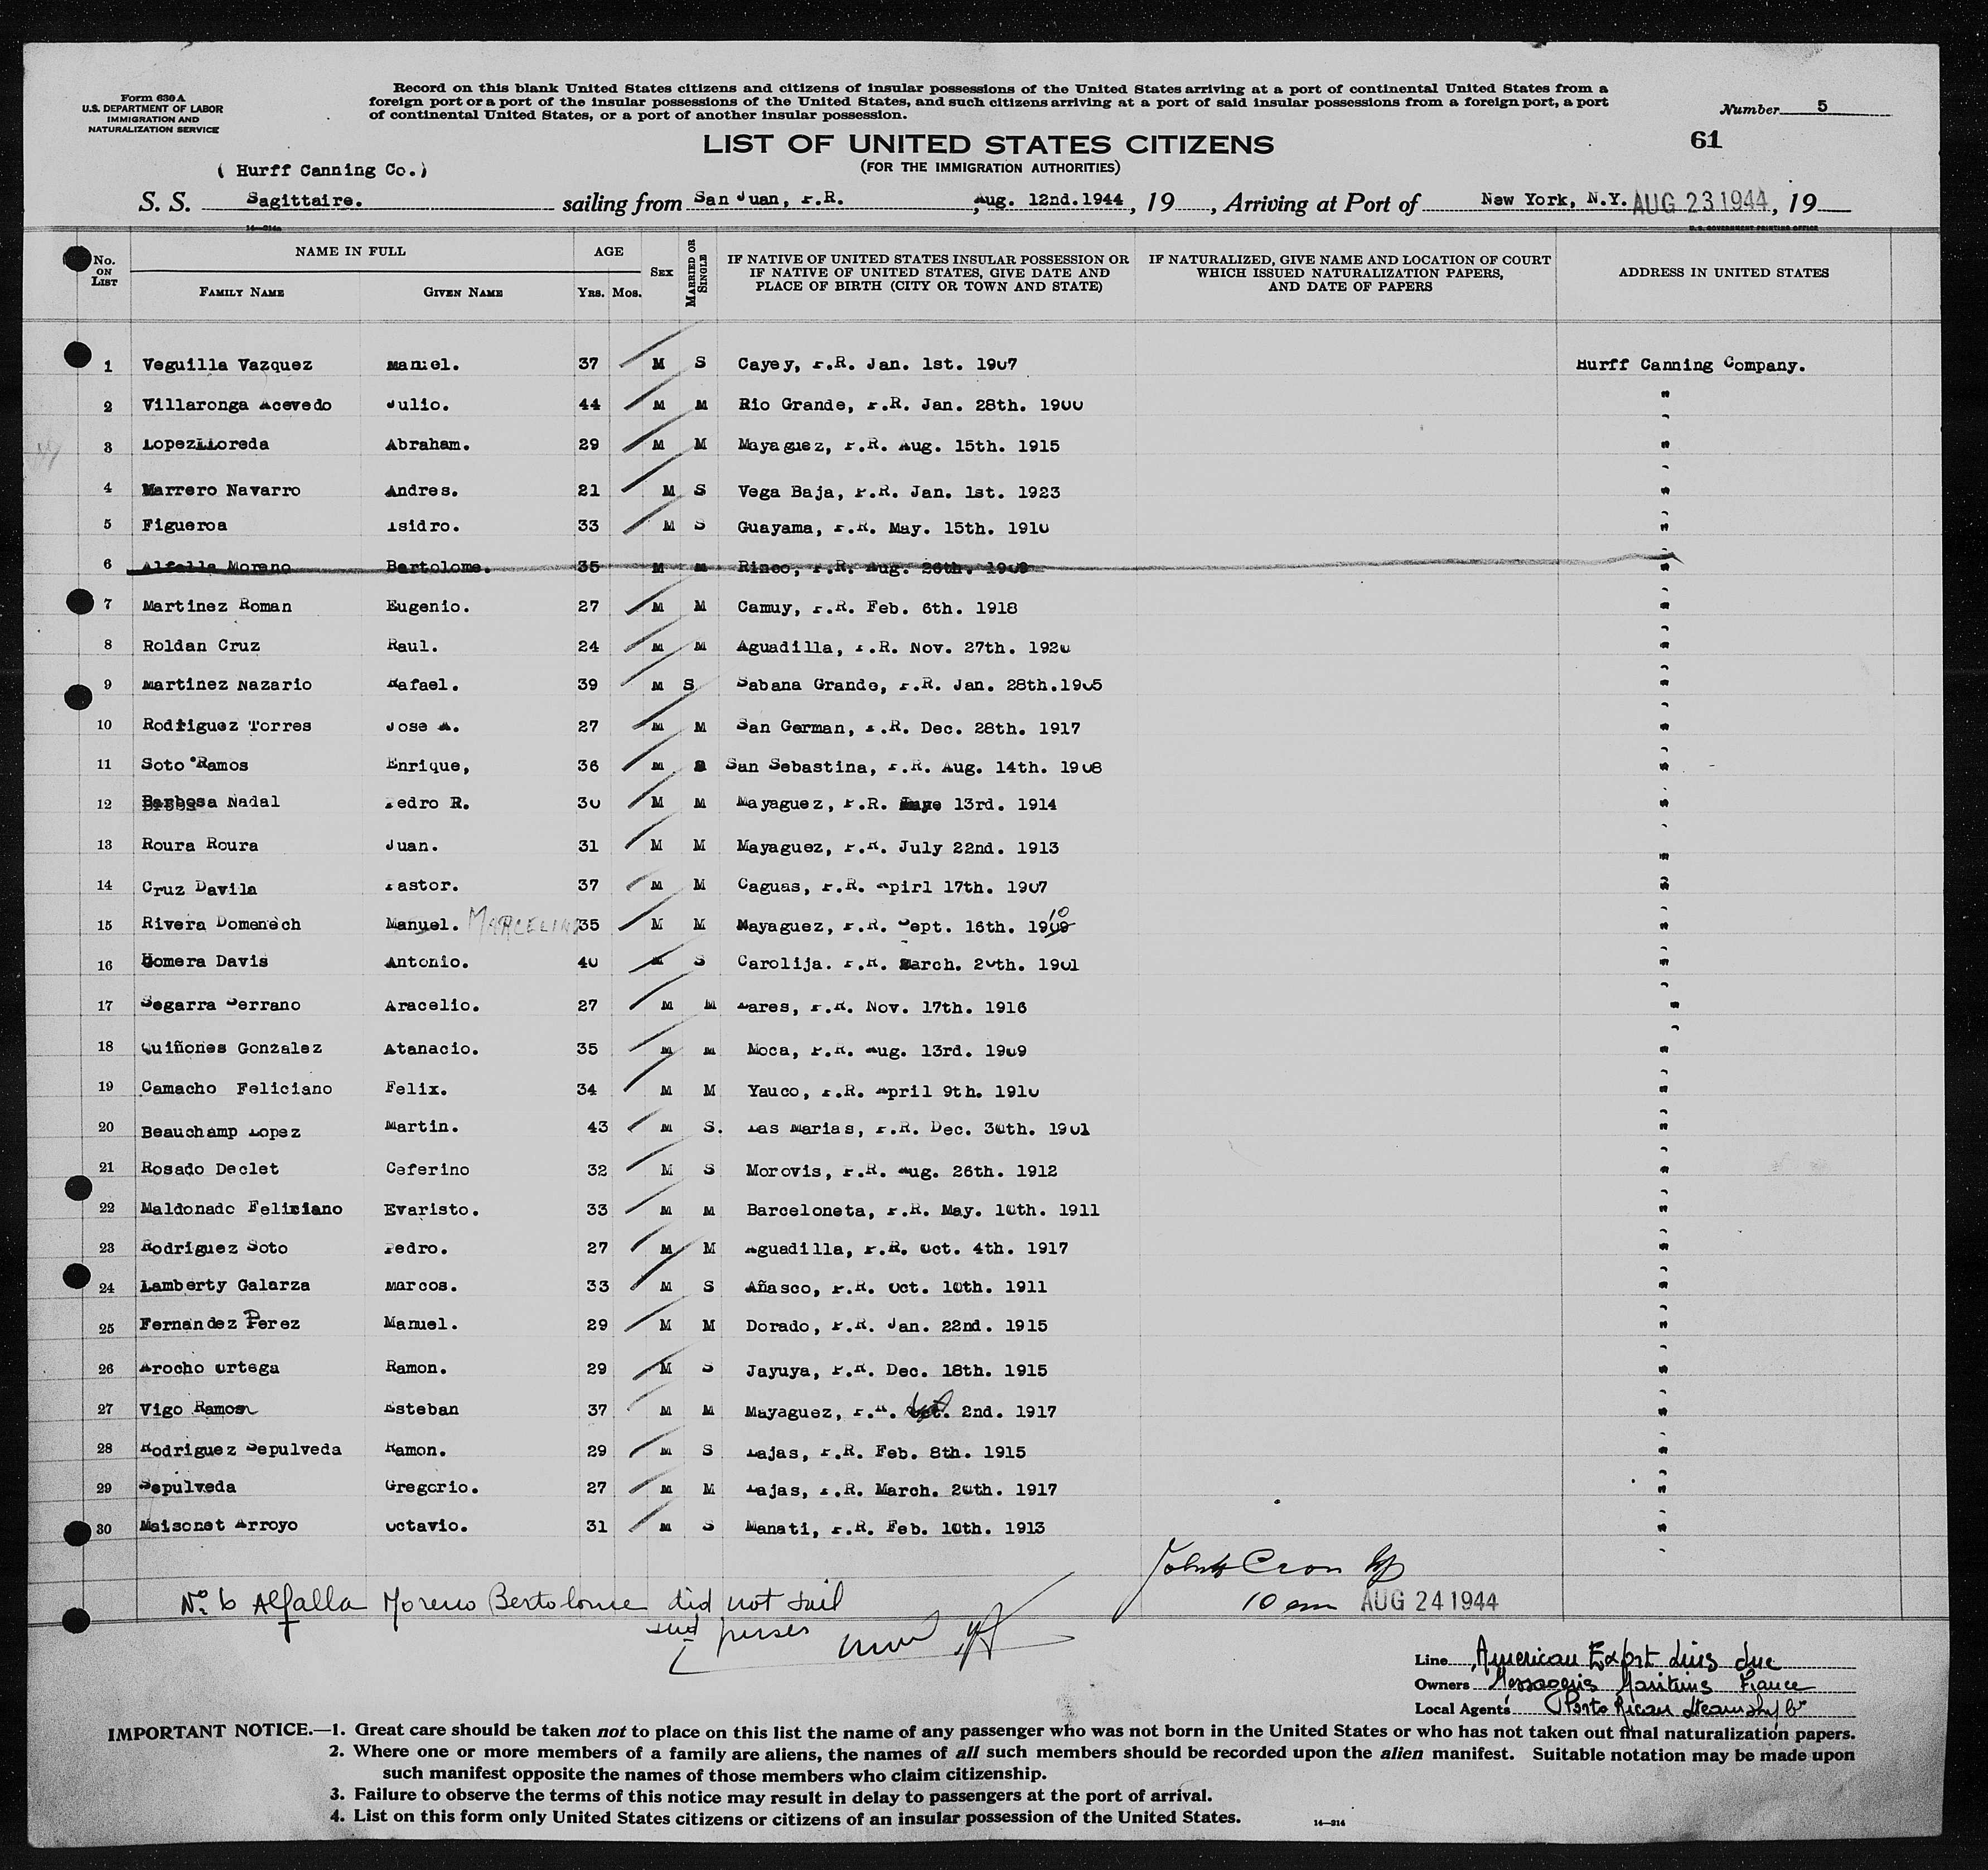 Form 630 A
U.S. DEPARTMENT OF LABOR
IMMIGRATION AND
NATURALIZATION SERVICE
Record on this blank United States citizens and citizens of insular possessions of the United States arriving at a port of continental United States from a
foreign port or a port of the insular possessions of the United States, and such citizens arriving at a port of said insular possessions from a foreign port, a port
of continental United States, or a port of another insular possession.
Number 5
61
LIST OF UNITED STATES CITIZENS
(FOR THE IMMIGRATION AUTHORITIES)
( Hurff Canning Co.)
S. S. Sagittaire. sailing from San Juan, P.R. , Aug. 12nd.1944 , 19 , Arriving at Port of New York, N.Y. AUG 23 1944 , 19
14—314a U. S. GOVERNMENT PRINTING OFFICE
No. ON LIST NAME IN FULL FAMILY NAME GIVEN NAME AGE YRS. MOS. SEX MARRIED OR SINGLE IF NATIVE OF UNITED STATES INSULAR POSSESSION OR IF NATIVE OF UNITED STATES, GIVE DATE AND PLACE OF BIRTH (CITY OR TOWN AND STATE) IF NATURALIZED, GIVE NAME AND LOCATION OF COURT WHICH ISSUED NATURALIZATION PAPERS, AND DATE OF PAPERS ADDRESS IN UNITED STATES
1 Veguilla Vazquez Manuel. 37 M S Cayey, P.R. Jan. 1st. 1907 Hurff Canning Company.
2 Villaronga Acevedo Julio. 44 M M Rio Grande, P.R. Jan. 28th. 1900 "
3 LopezLloreda Abraham. 29 M M Mayaguez, P.R. Aug. 15th. 1915 "
4 Marrero Navarro Andres. 21 M S Vega Baja, P.R. Jan. 1st. 1923 "
5 Figueroa Isidro. 33 M S Guayama, P.R. May. 15th. 1910 "
6 Alfalla Moreno Bartolome. 35 M M Rinco, P.R. Aug. 26th. 1909 "
7 Martinez Roman Eugenio. 27 M M Camuy, P.R. Feb. 6th. 1918 "
8 Roldan Cruz Raul. 24 M M Aguadilla, P.R. Nov. 27th. 1920 "
9 Martinez Nazario Rafael. 39 M S Sabana Grande, P.R. Jan. 28th.1905 "
10 Rodriguez Torres Jose A. 27 M M San German, P.R. Dec. 28th. 1917 "
11 Soto Ramos Enrique, 36 M San Sebastina, P.R. Aug. 14th. 1908 "
12 Barbosa Nadal Pedro R. 30 M M Mayaguez, P.R. 13rd. 1914 "
13 Roura Roura Juan. 31 M M Mayaguez, P.R. July 22nd. 1913 "
14 Cruz Davila Pastor. 37 M M Caguas, P.R. Apirl 17th. 1907 "
15 Rivera Domenech Manuel. MARCELINO 35 M M Mayaguez, P.R. Sept. 16th. 1909 10 "
16 Homera Davis Antonio. 40 M S Carolija. P.R. March. 20th. 1901 "
17 Segarra Serrano Aracelio. 27 M M Lares, P.R. Nov. 17th. 1916 "
18 Quiñones Gonzalez Atanacio. 35 M M Moca, P.R. Aug. 13rd. 1909 "
19 Camacho Feliciano Felix. 34 M M Yauco, P.R. April 9th. 1910 "
20 Beauchamp Lopez Martin. 43 M S. Las Marias, P.R. Dec. 30th. 1901 "
21 Rosado Declet Ceferino 32 M S Morovis, P.R. Aug. 26th. 1912 "
22 Maldonado Feliciano Evaristo. 33 M M Barceloneta, P.R. May. 10th. 1911 "
23 Rodriguez Soto Pedro. 27 M M Aguadilla, P.R. Oct. 4th. 1917 "
24 Lamberty Galarza Marcos. 33 M S Añasco, P.R. Oct. 10th. 1911 "
25 Fernandez Perez Manuel. 29 M M Dorado, P.R. Jan. 22nd. 1915 "
26 Arocho Ortega Ramon. 29 M S Jayuya, P.R. Dec. 18th. 1915 "
27 Vigo Ramos Esteban 37 M M Mayaguez, P.R. 2nd. 1917 "
28 Rodriguez Sepulveda Ramon. 29 M S Lajas, P.R. Feb. 8th. 1915 "
29 Sepulveda Gregorio. 27 M M Lajas, P.R. March. 20th. 1917 "
30 Maisonet Arroyo Octavio. 31 M S Manati, P.R. Feb. 10th. 1913 "
John Cron
10 am AUG 24 1944
No. 6 Alfalla Moreno Bertolome did not sail
purser
Line American Export Lines Inc
Owners Messageries Maritimes France
Local Agents Porto Rican Steamship Co
IMPORTANT NOTICE.—1. Great care should be taken not to place on this list the name of any passenger who was not born in the United States or who has not taken out final naturalization papers.
2. Where one or more members of a family are aliens, the names of all such members should be recorded upon the alien manifest. Suitable notation may be made upon
such manifest opposite the names of those members who claim citizenship.
3. Failure to observe the terms of this notice may result in delay to passengers at the port of arrival.
4. List on this form only United States citizens or citizens of an insular possession of the United States.
14—314